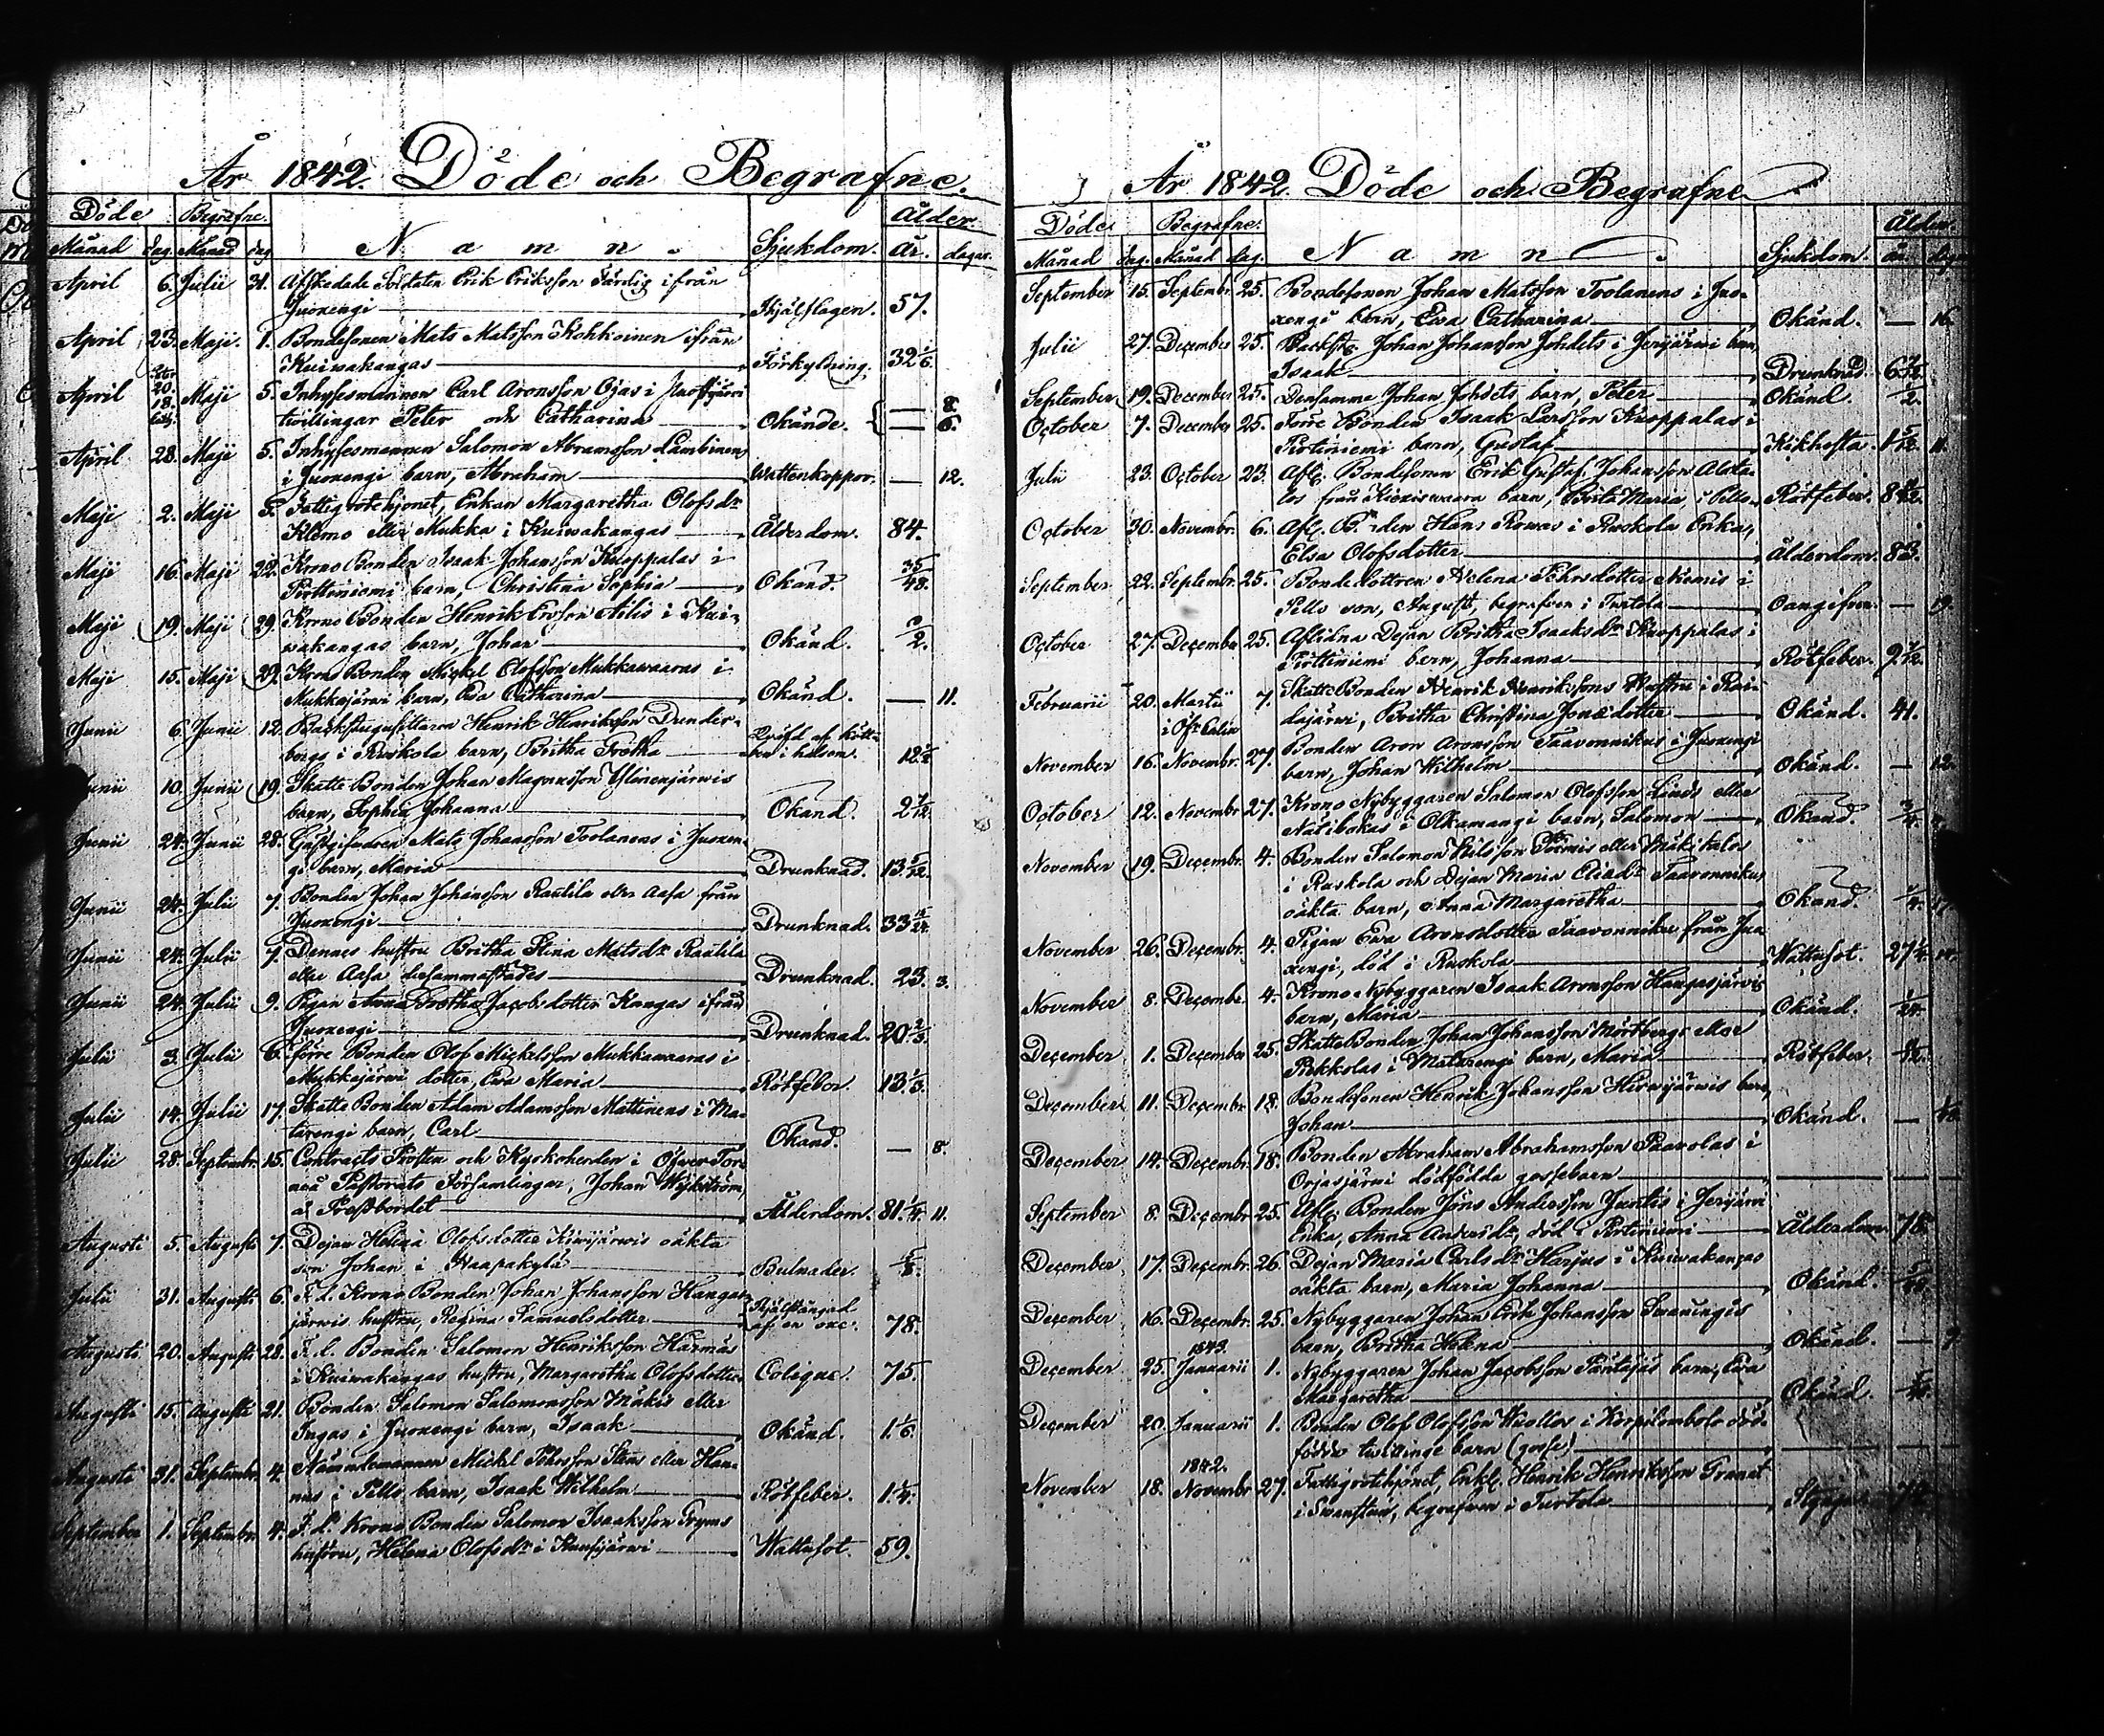 År 1842. Döde och Begrafne.
Döde Begrafne. Ålder.
Månad dag. Månad dag N a m n. Sjukdom. år. dagar.
April 6. Julii 31. Afskedade Soldaten Erik Eriksson Färdig ifrån
Juoxengi Ihjälslagen. 57.
April 23. Maji. 1. Bondesonen Mats Matsson Kohkoinen ifrån
Kuiwakangas Förkylning. 32 1/6.
April 20. 18. Maji 5. Inhysesmannen Carl Aronsson Ojas i
twillingar Peter och Catharina Okände. — 8. — 6.
April 28. Maji 5. Inhysesmannen Salomon Abramsson Lambinen
i Juoxengi barn, Abraham Wattenkoppor. — 12.
Maji 2. Maji 5. Fattighjonet, Enkan Margaretha Olofsdr
Klemo eller Mukka i Kuiwakangas Ålderdom. 84.
Maji 16. Maji 22. Krono Bonden Isaak Johansson Knoppalas i
Pirttiniemi barn, Christina Sophia Okänd. 35/48.
Maji 19. Maji 29. Krono Bonden Henrik Ersson Ailis i Kui-
wakangas barn, Johan Okänd.
Maji 15. Maji 29. Krono Bonden Mickel Olofsson Mukkawaaras i
Mukkajärwi barn, Ewa Catharina Okänd. — 11.
Junii 6. Junii 12. Backstugusittaren Henrik Henriksson Drunder-
bergs i Ruskola barn, Britha Gretha Qwäfd af kött-
ben i halsen.
Junii 10. Junii 19. Skatte Bonden Johan Magnusson Ylinenjärwis
barn, Sophia Johanna Okänd.
Junii 24. Junii 28. Gästgifwaren Mats Johansson Toolanens i Juoxen-
gi barn, Maria Drunknad.
Junii 24. Julii 7. Bonden Johan Johansson Rautila eller Aasa från
Juoxengi Drunknad.
Junii 24. Julii 7. Dennes hustru Britha Stina Matsdr Rautila
eller Aasa dersammastädes Drunknad. 23. 3.
Junii 24. Julii 9. Pigan Anna Gretha Jacobsdotter Kangas ifrån
Juoxengi Drunknad.
Julii 3. Julii 6. Förre Bonden Olof Mickelsson Mukkawaaras i
Mukkajärwi dotter, Ewa Maria Rötfeber.
Julii 14. Julii 17. Skatte Bonden Adam Adamsson Mattinens i Ma-
tarengi barn, Carl Okänd. — 8.
Julii 28. Septembr. 15. Contracts Prosten och Kyrkoherden i Öfwer Tor-
neå Pastorats Församlingar, Johan Wijkström,
å Prestbordet Ålderdom. 81 1/4. 11.
Augusti 5. Augusti 7. Dejan Helena Olofsdotter Kiwijärwis oäkta
son Johan i Haapakylä Bulnader.
Julii 31. Augusti 6. F. d. Krono Bonden Johan Johansson Hangas-
järwis hustru, Regina Samuelsdotter Ihjälstångad
af en oxe. 78.
Augusti 20. Augusti 28. F. d. Bonden Salomon Henriksson Harmäs
i Kuiwakangas hustru, Margaretha Olofsdotter Colique. 75.
Augusti 15. Augusti 21. Bonden Salomon Salomonsson Mäkis eller
Ingas i Juoxengi barn, Isaak Okänd. 1 1/6.
Augusti 31. Septembr. 4. Nämndemannen Mickel Pehrsson Stens eller Han-
nus i Pello barn, Isaak Wilhelm Rötfeber. 1 1/4.
September 1. Septembr. 4. F. d. Krono Bonden Salomon Isaaksson Gryms
hustru, Helena Olofsdr i Kuusijärwi Wattusot. 59.
År 1842. Döde och Begrafne
Döde. Begrafne. Ålder.
Månad dag. Månad dag. N a m n. Sjukdom. år. dagar
September 15. Septembr. 25. Bondesonen Johan Matsson Toolanens i Juo-
xengi barn, Ewa Catharina Okänd. — 16.
Julii 27. December 25. Johan Johansson Johdets i Jerijärwi barn,
Isaak Drunknad.
September 19. December 25. Densamma Johan Johdets barn, Peter Okänd.
October 7. December 25. Förre Bonden Isaak Larsson Knoppalas i
Pirttiniemi barn, Gustaf Kikhosta.
Julii 23. October 23. Afl. Bondesonen Erik Gustaf Johansson
från barn, Brita Maria, i Pello Rötfeber.
October 30. Novembr. 6. Afl. Bonden Hans Rowas i Ruskola Enka,
Elsa Olofsdotter Ålderdom. 83.
September 22. Septembr. 25. Bondedottren Helena Pehrsdotter Niemis i
Pello son, August, begrafwen i Turtola Oangifwen. — 19.
October 27. December 25. Aflidna Dejan Britha Isaaksdr Knoppalas i
Pirttiniemi barn, Johanna Rötfeber.
Februarii 20. Martii 7. Skatte Bonden Henrik Henrikssons Hustru i Rai-
dajärwi, Britha Christina Jönsdotter Okänd. 41.
November 16. Novembr. 27. Bonden Aron Aronsson Taavonnikus i Juoxengi
barn, Johan Wilhelm Okänd. — 12.
October 12. Novembr. 27. Krono Nybyggaren Salomon Olofsson Linds eller
Nätibokas i Olkamangi barn, Salomon Okänd. 3/4.
November 19. Decembr. 4. Bonden Salomon Nilsson eller Mäkitalos
i Ruskola och Dejan Maria Taavonnikus
oäkta barn, Anna Margaretha Okänd.
November 26. Decembr. 4. Pigan Ewa Aronsdotter Taavonniku från Juo-
xengi, död i Ruskola Wattusot.
November 8. Decembr. 4. Krono Nybyggaren Isaak Aronsson Hangasjärwis
barn, Maria Okänd.
December 1. December 25. Skatte Bonden Johan Johansson Mörtbergs eller
Pekkolas i Matarengi barn, Maria Rötfeber.
December 11. Decembr. 18. Bondesonen Henrik Johansson Hirwijärwis barn,
Johan Okänd.
December 14. Decembr. 18. Bonden Abraham Abrahamsson Paavolas i
Orjasjärwi dödfödda gossebarn
September 8. Decembr. 25. Afl. Bonden Jöns Andersson Juntis i Jerijärwi
Enka, Anna Andersdr, död i Pirtiniemi Ålderdom. 78.
December 17. Decembr. 26. Dejan Maria Carlsdr Harjus i Kuiwakangas
oäkta barn, Maria Johanna Okänd.
December 16. Decembr. 25. Nybyggaren Johan Erik Johansson Swaningis
barn, Britha Helena Okänd. — 9.
1843.
December 25. Januarii 1. Nybyggaren Johan Jacobsson Päntäjäs barn, Ewa
Margaretha Okänd.
December 20. Januarii 1. Bonden Olof Olofsson Wuollos i Korpilombolo död-
födde twillinge barn (gosse)
1842.
November 18. Novembr. 27. Fattighjonet, Enkl. Henrik Henriksson Granat
i Swanstein, begrafwen i Turtola